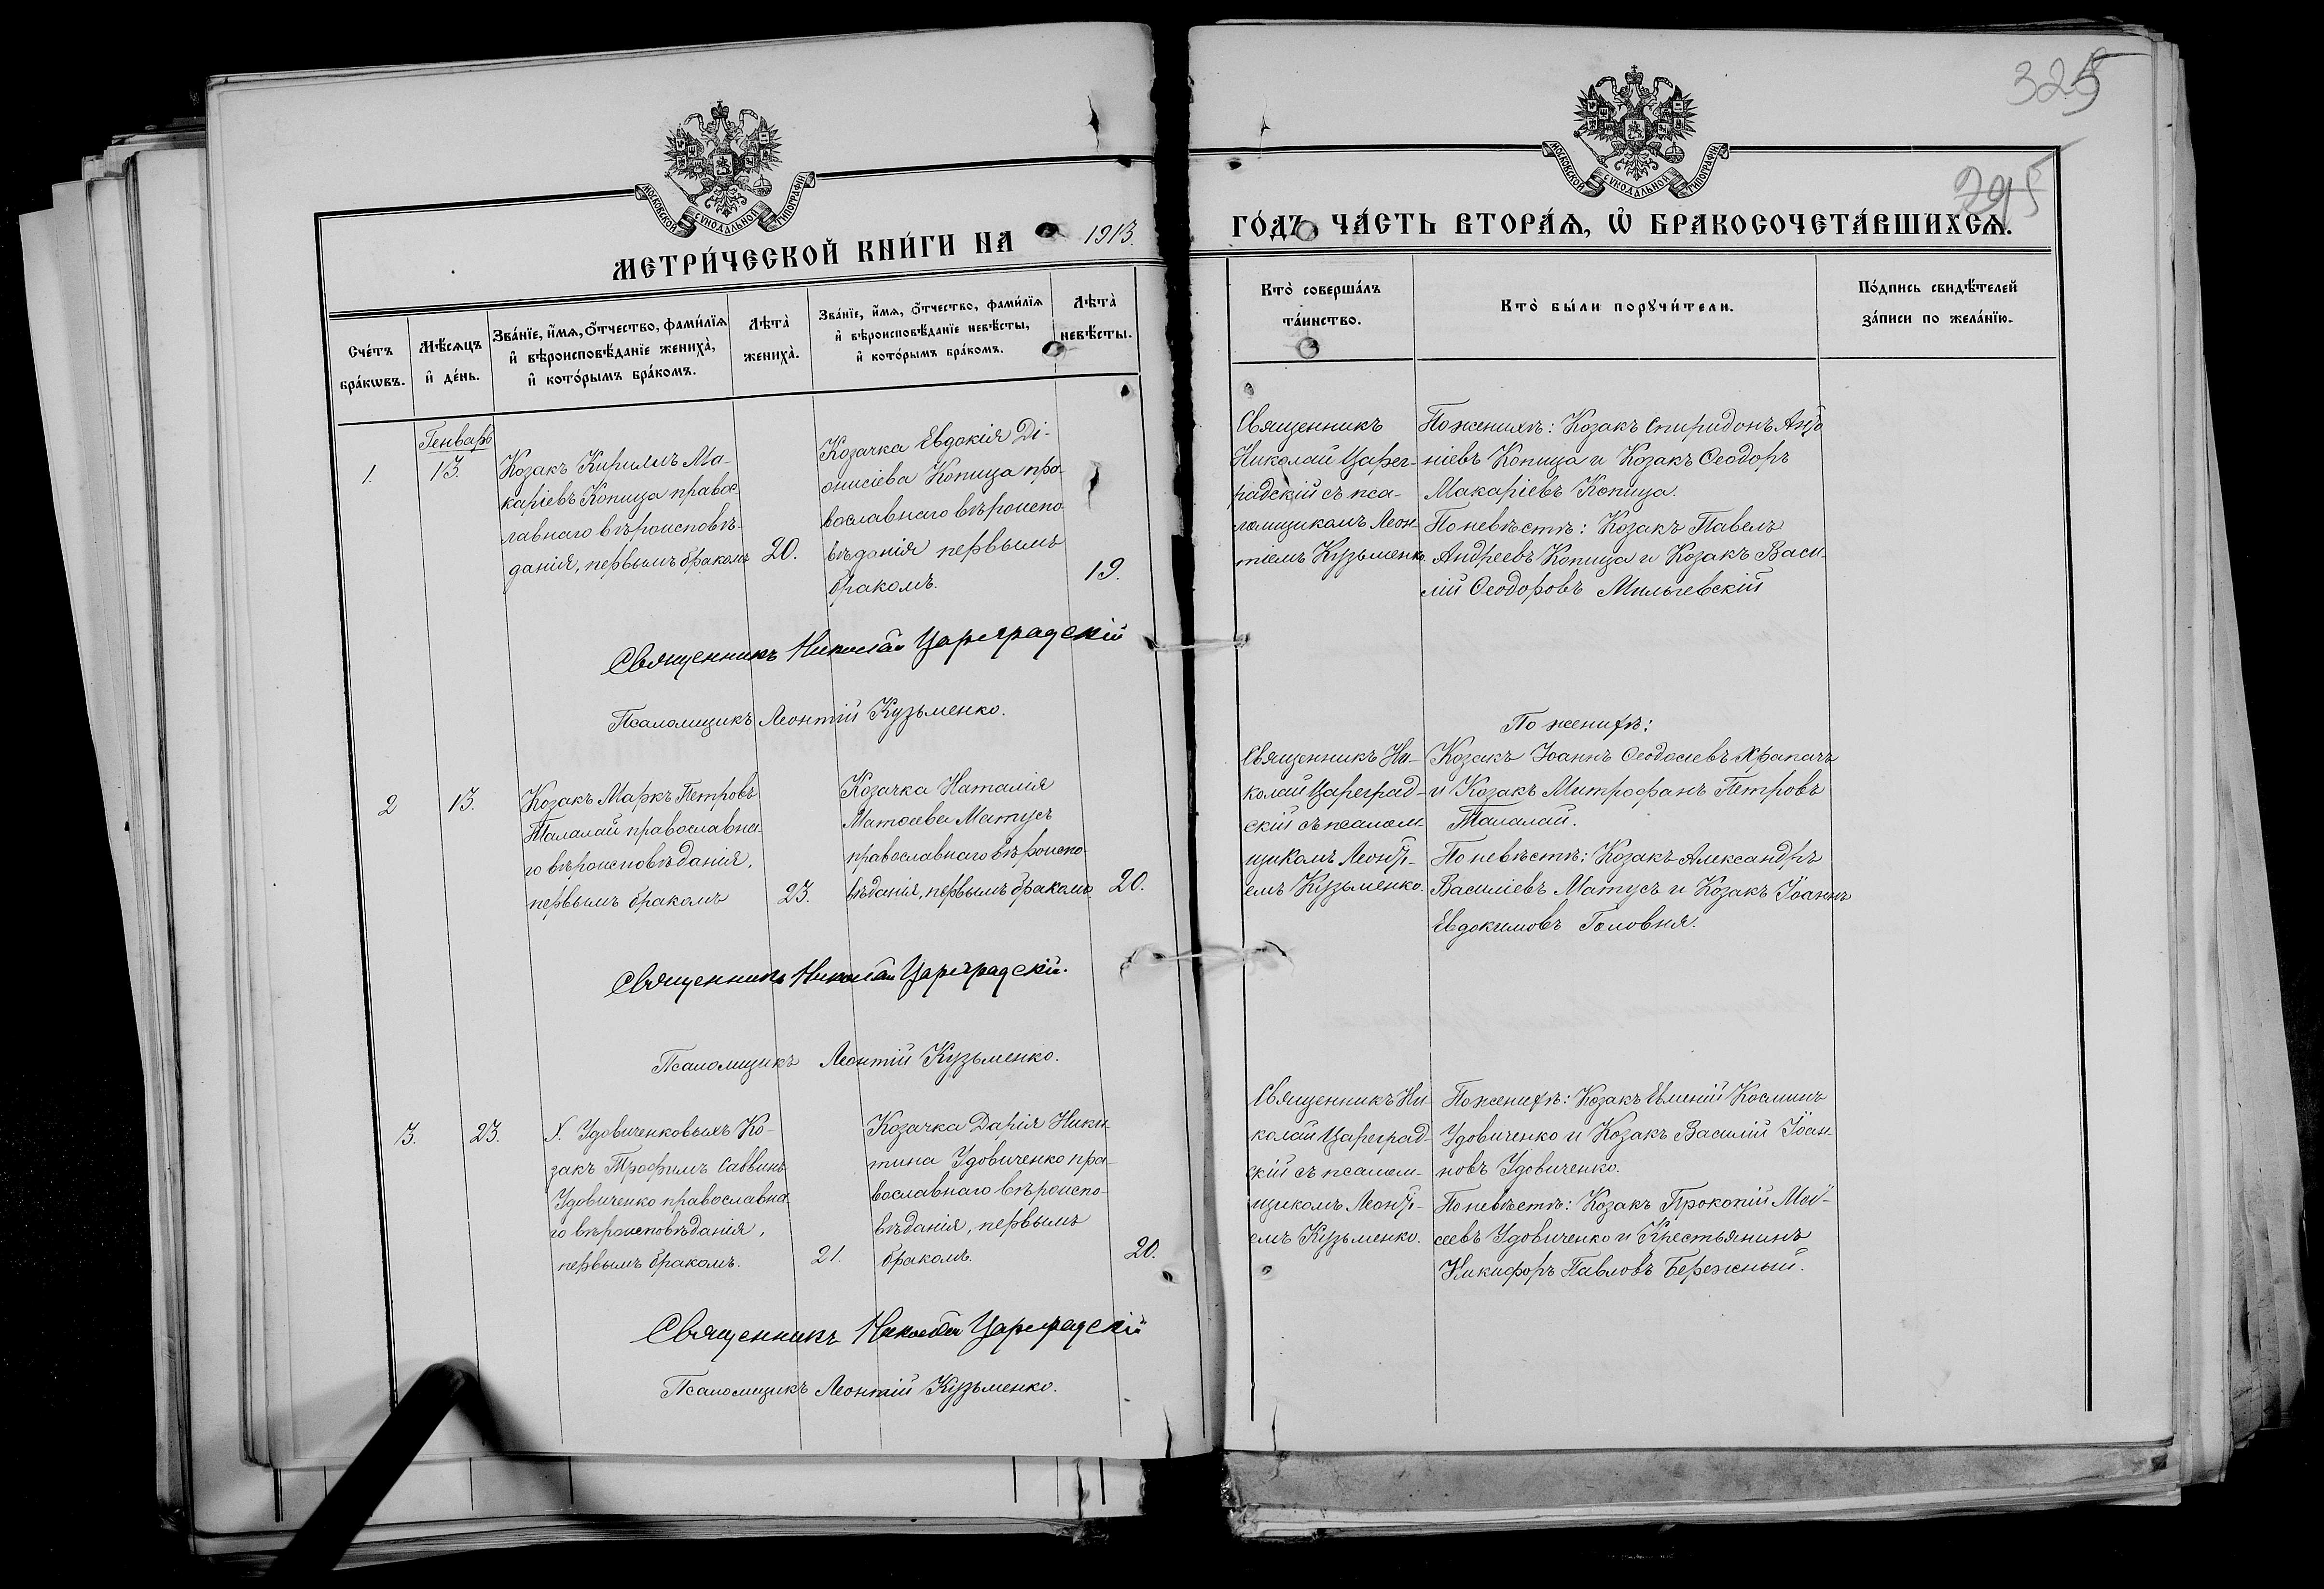 325
295
МОСКОВСКОЙ СУНОДАЛЬНОЙ ТИПОГРАФІИ
МОСКОВСКОЙ СУНОДАЛЬНОЙ ТИПОГРАФІИ
МЕТРИ́ЧЕСКОЙ КНИ́ГИ НА 1913.
ГО́ДЪ, ЧА́СТЬ ВТОРА́Ѧ, Ѽ БРАКОСОЧЕТА́ВШИХСѦ.
Сче́тъ
бра́кѡвъ.
Мѣ́сѧцъ
и҆ де́нь.
Зва́нїе, и҆́мѧ, ѻ҆́тчество, фами́лїѧ
и҆ вѣроисповѣ́данїе жениха̀,
и҆ кото́рымъ бра́комъ.
Лѣта̀
жениха̀.
Зва́нїе, и҆́мѧ, ѻ҆́тчество, фами́лїѧ
и҆ вѣроисповѣ́данїе невѣ́сты,
и҆ кото́рымъ бра́комъ.
Лѣта̀
невѣ́сты.
Кто̀ соверша́лъ
та́инство.
Кто̀ бы́ли порꙋчи́тели.
По́дпись свидѣ́телей
за́писи по жела́нїю.
1.
Генварь
13.
Козакъ Кирилъ Ма-
каріевъ Копица правос-
лавнаго вѣроисповѣ-
данія, первымъ бракомъ
20.
Козачка Евдокія Ді-
онисіева Копица пра-
вославнаго вѣроиспо-
вѣданія первымъ
бракомъ.
19.
Священникъ
Николай Царег-
радскій съ пса-
ломщикомъ Леон-
тіемъ Кузьменко.
По женихѣ: Козакъ Спиридонъ
ніевъ Копица и Козакъ Ѳеодоръ
Макаріевъ Копица.
По невѣстѣ: Козакъ Павелъ
Андреевъ Копица и Козакъ Васи-
лій Ѳеодоровъ Мильчевскій
Священникъ Николай Цареградскій
Псаломщикъ Леонтій Кузьменко.
2
13.
Козакъ Маркъ Петровъ
Талалай православна-
го вѣроисповѣданія,
первымъ бракомъ
23.
Козачка Наталія
Матѳеева Матусъ
православнаго вѣроиспо-
вѣданія, первымъ бракомъ.
20.
Священникъ Ни-
колай Цареград-
скій съ псалом-
щикомъ Леонті-
емъ Кузьменко.
По женихѣ:
Козакъ Іоаннъ Ѳеодосіевъ Храпачъ
и Козакъ Митрофанъ Петровъ
Талалай.
По невѣстѣ: Козакъ Александръ
Василіевъ Матусъ и Козакъ Іоаннъ
Евдокимовъ Головня.
Священникъ Николай Цареградскій.
Псаломщикъ Леонтій Кузьменко.
3.
23.
Х. Удовиченковыхъ Ко-
закъ Трофимъ Саввинъ
Удовиченко православна-
го вѣроисповѣданія,
первымъ бракомъ.
21.
Козачка Дарія Ники-
тина Удовиченко пра-
вославнаго вѣроиспо-
вѣданія, первымъ
бракомъ.
20.
Священникъ Ни-
колай Цареград-
скій съ псалом-
щикомъ Леонті-
емъ Кузьменко.
По женихѣ: Козакъ Евмений Косминъ
Удовиченко и Козакъ Василій Іоан-
новъ Удовиченко.
По невѣстѣ: Козакъ Прокопій Мої-
сеевъ Удовиченко и Крестьянинъ
Никифоръ Павловъ Бережный.
Священникъ Николай Цареградскій
Псаломщикъ Леонтій Кузьменко.